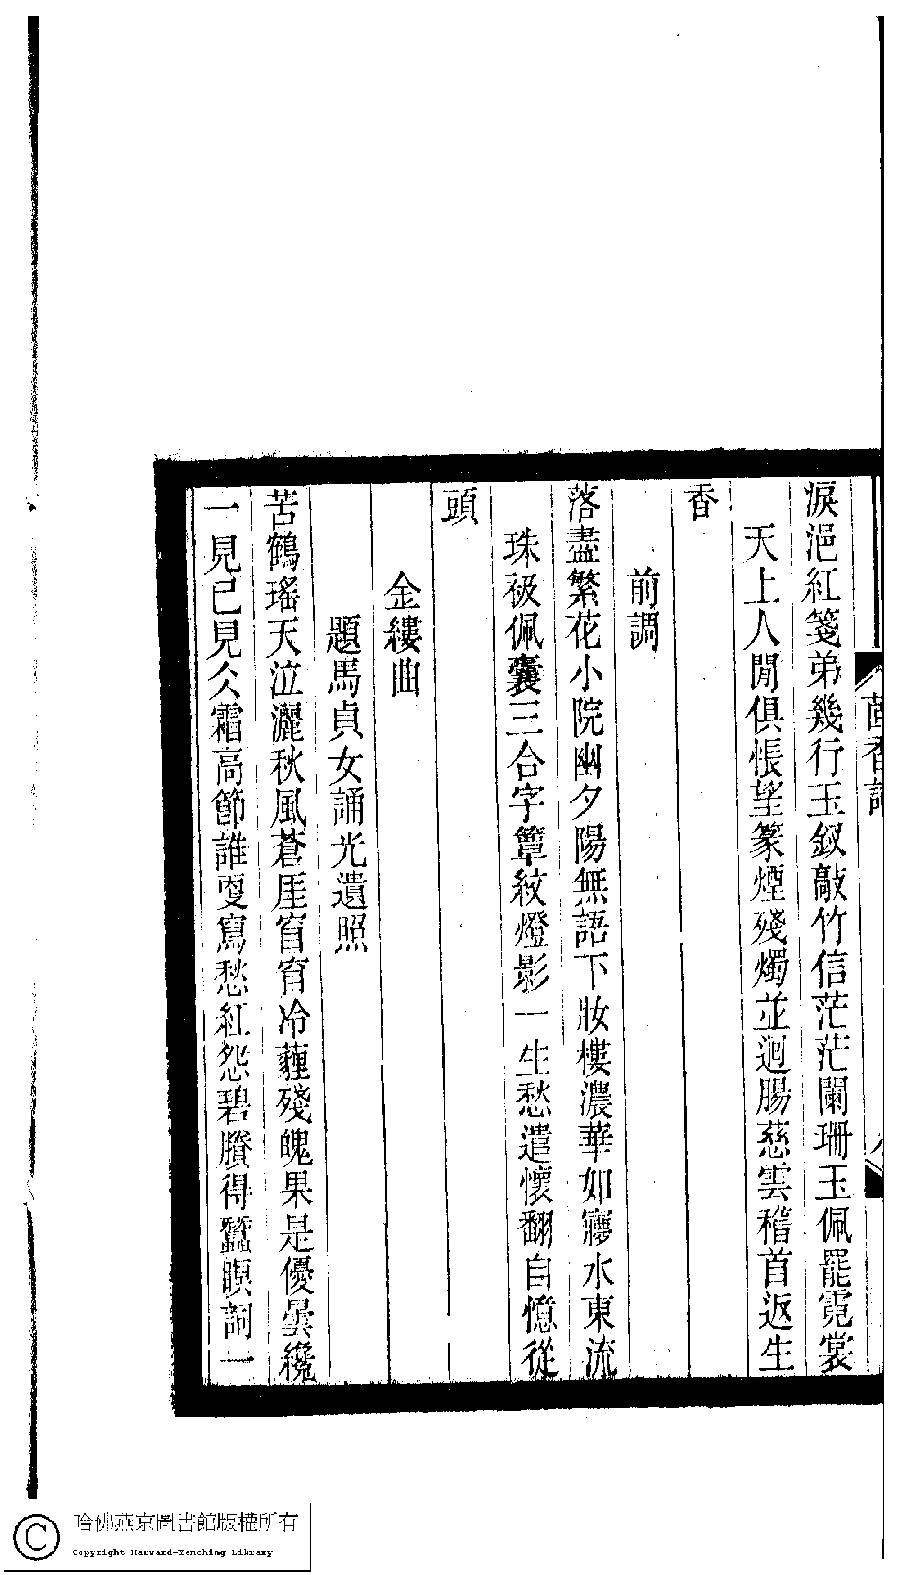 茴香詞
淚浥紅箋弟幾行玉釵敲竹信茫茫闌珊玉佩罷霓裳
天上人閒俱悵望篆煙殘燭並迴腸慈雲稽首返生
香
前調
落盡繁花小院幽夕陽無語下妝樓濃華如寱水東流
珠衱佩囊三合字簟紋燈影一生愁遣懷翻自憶從
頭
金縷曲
題馬貞女誦光遺照
苦鶴瑤天泣灑秋風蒼厓窅窅冷薶殘魄果是優曇纔
一見已見久霜高節誰更寫愁紅怨碧賸得蠶瞑詞一
哈佛燕京圖書館版權所有
Copyright Harvard-Yenching Library